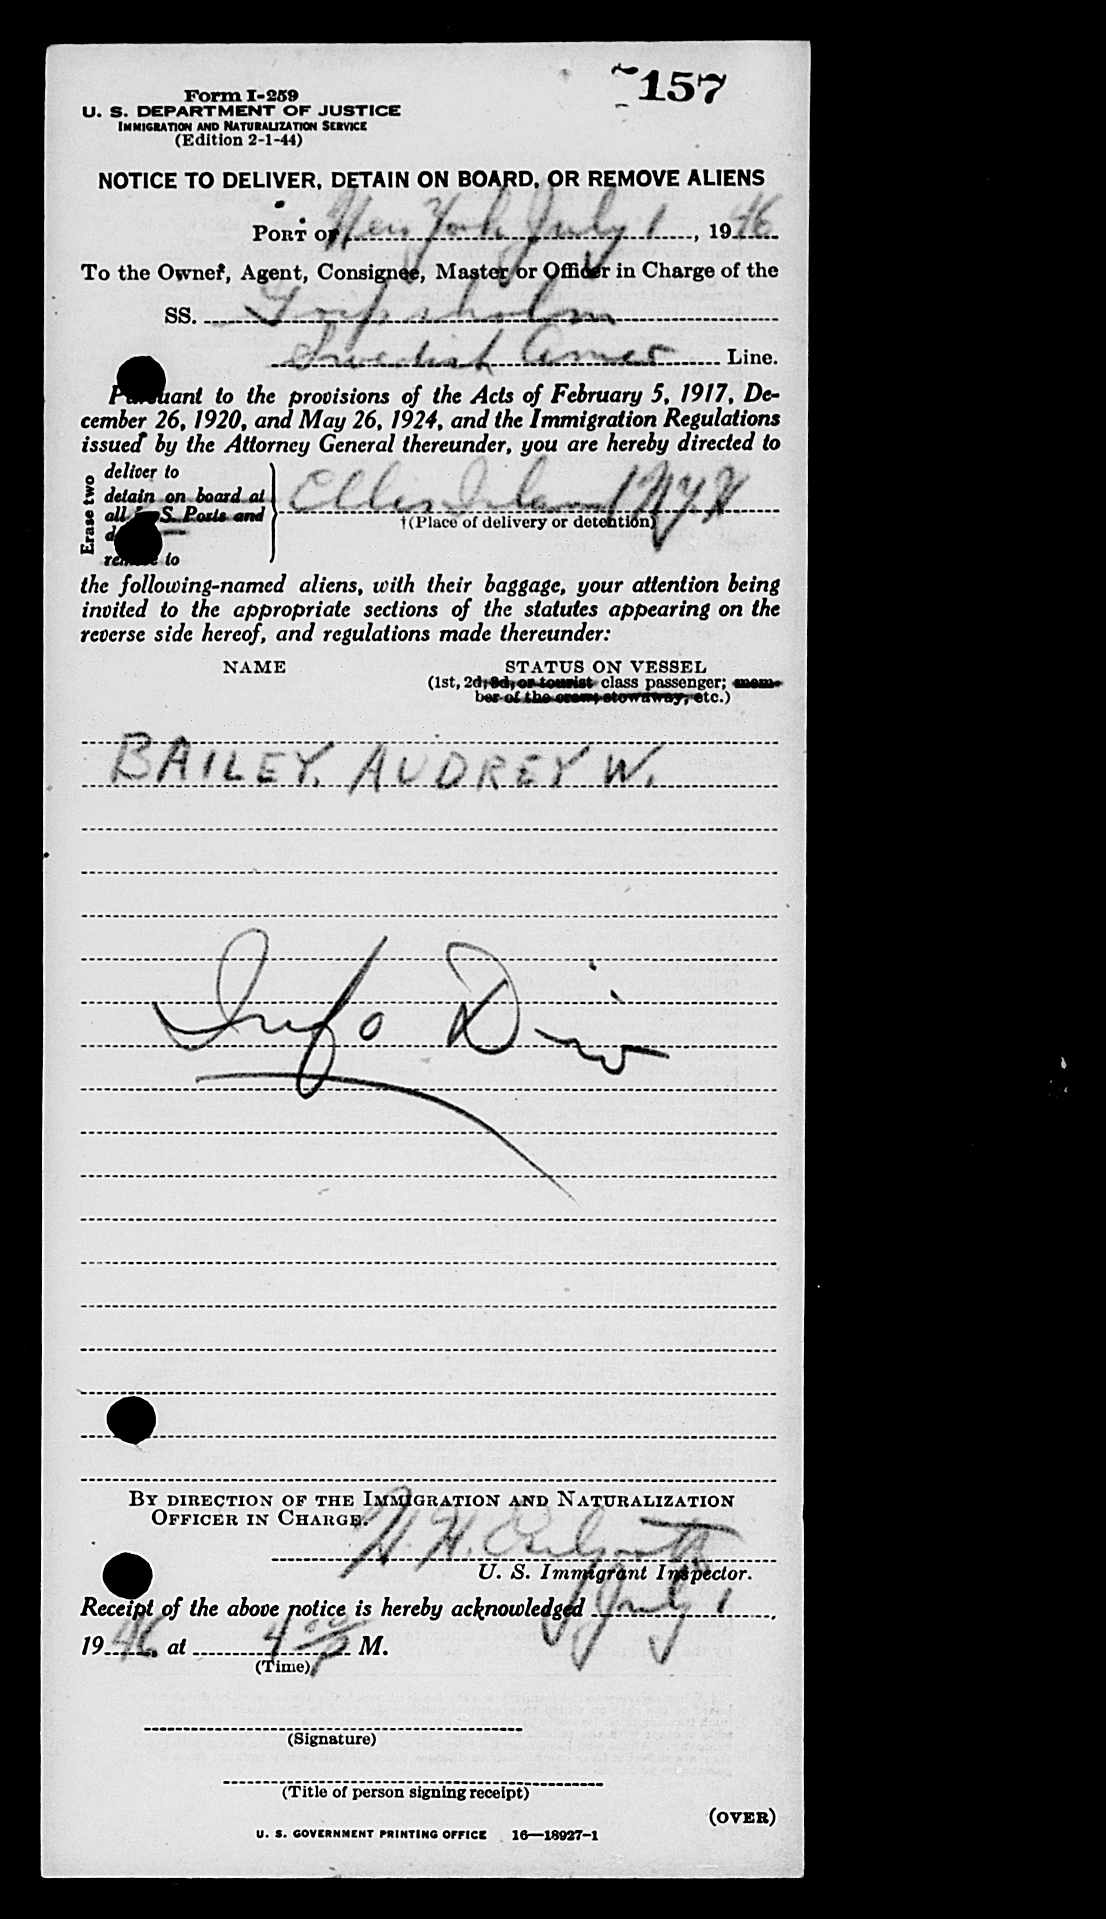 157
Form I-259
U. S. DEPARTMENT OF JUSTICE
IMMIGRATION AND NATURALIZATION SERVICE
(Edition 2-1-44)
NOTICE TO DELIVER, DETAIN ON BOARD, OR REMOVE ALIENS
PORT OF New York July 1, 1946
To the Owner, Agent, Consignee, Master or Officer in Charge of the
SS. Gripsholm
Swedish Amer Line.
Pursuant to the provisions of the Acts of February 5, 1917, De-
cember 26, 1920, and May 26, 1924, and the Immigration Regulations
issued by the Attorney General thereunder, you are hereby directed to
Erase two
deliver to
detain on board at
all U. S. Ports and
remove to
Ellis Island N.Y.H
†(Place of delivery or detention)
the following-named aliens, with their baggage, your attention being
invited to the appropriate sections of the statutes appearing on the
reverse side hereof, and regulations made thereunder:
NAME STATUS ON VESSEL
(1st, 2d, 3d, or tourist class passenger; mem-
ber of the crew, stowaway, etc.)
BAILEY, AUDREY W.
Info Div
BY DIRECTION OF THE IMMIGRATION AND NATURALIZATION
OFFICER IN CHARGE.
U. S. Immigrant Inspector.
Receipt of the above notice is hereby acknowledged July 1,
1946, at 4 00 P M.
(Time)
(Signature)
(Title of person signing receipt)
(OVER)
U. S. GOVERNMENT PRINTING OFFICE 16—18927-1